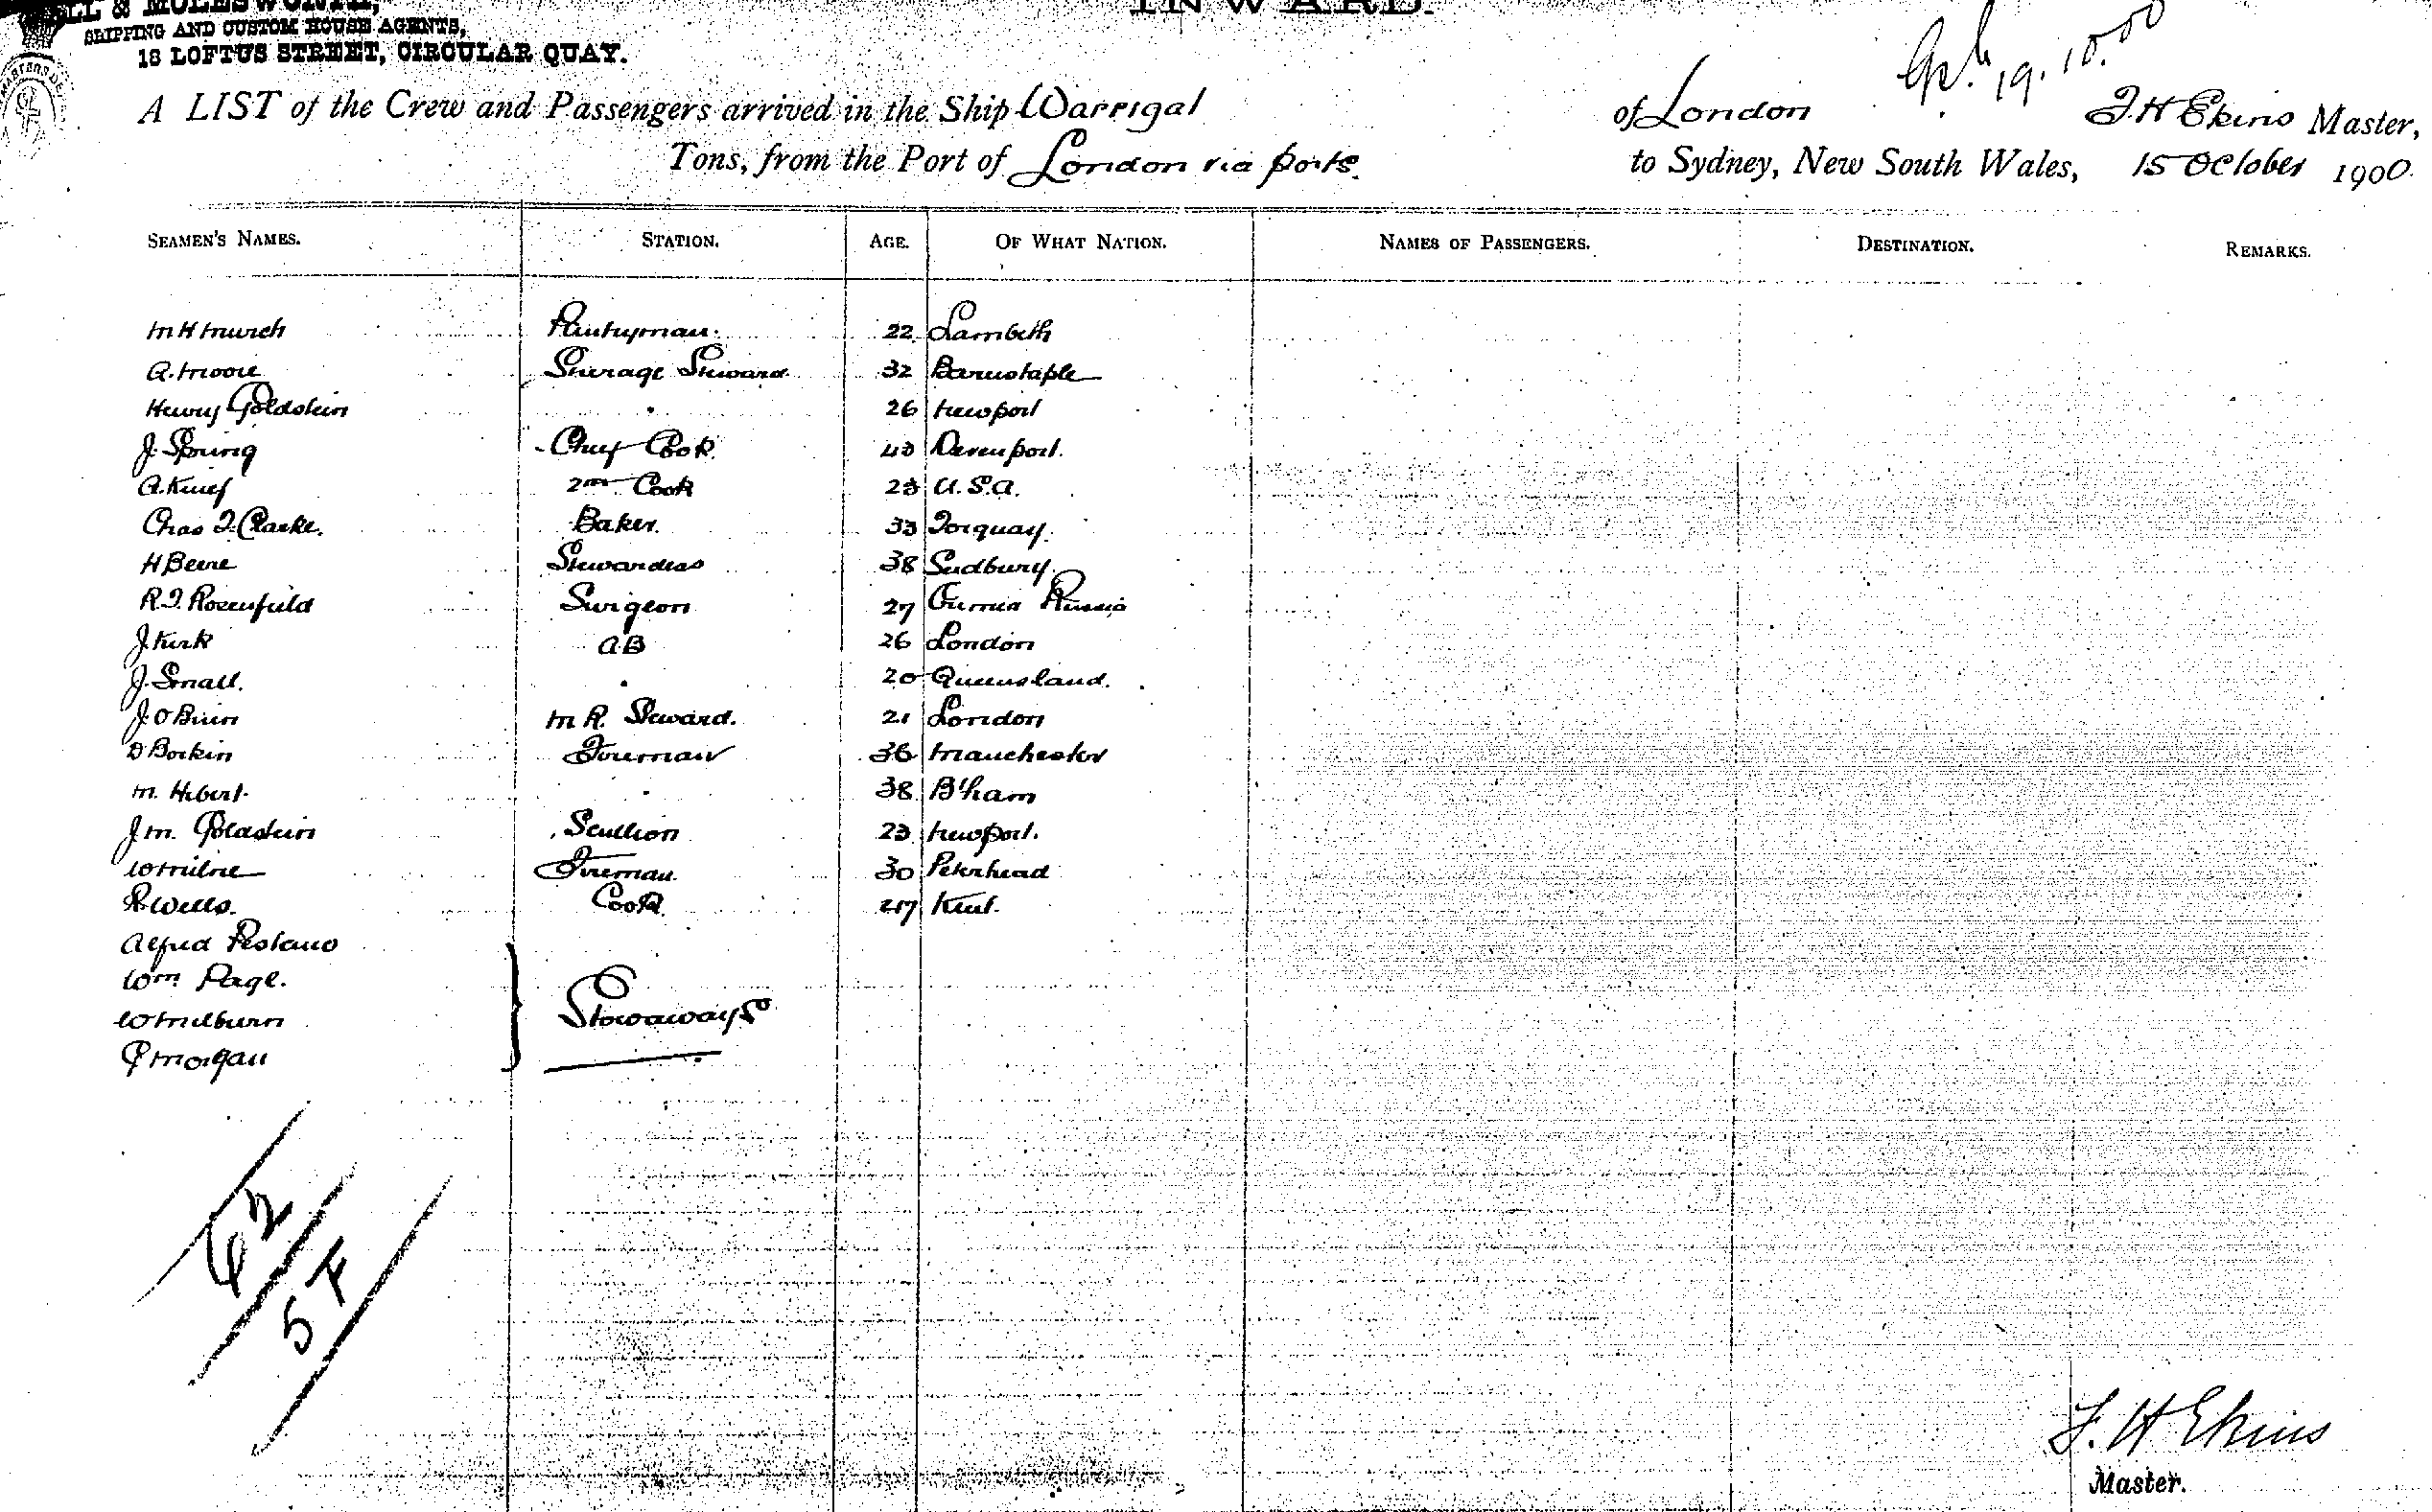 & MOLESWORTH,
SHIPPING AND CUSTOM HOUSE AGENTS,
18 LOFTUS STREET, CIRCULAR QUAY.
INWARD.
19.10.00
A LIST of the Crew and Passengers arrived in the Ship Warrigal of London F.H Ekins Master,
Tons, from the Port of London via ports. to Sydney, New South Wales, 15 October 1900.
SEAMEN'S NAMES. STATION. AGE. OF WHAT NATION. NAMES OF PASSENGERS. DESTINATION. REMARKS.
M H Murch Pantryman. 22 Lambeth
A. Moore Steerage Steward 32 Barnstaple
Henry Goldstein " 26 Newport
J. Spring Chief Cook. 43 Devenport.
A. Knief 2nd Cook 23 U.S.A.
Chas F. Clarke. Baker. 33 Torquay.
H Beere Stewardess 38 Sudbury.
R.F. Rosenfield Surgeon 27 Russia
J. Kirk AB 26 London
J. Small. " 20 Queensland.
J. O Brien M R. Steward. 21 London
D Borkin Fireman 36 Manchester
M. Hibert. " 38 B'ham
J M. Goldstein Scullion 23 Newport.
W Milne Fireman 30 Peterhead
R Wells. Cook. 47 Kent.
Alfred Pestano
Wm Page.
W Milburn
Morgan
Stowaways
62
5 F
F. H Ekins
Master.